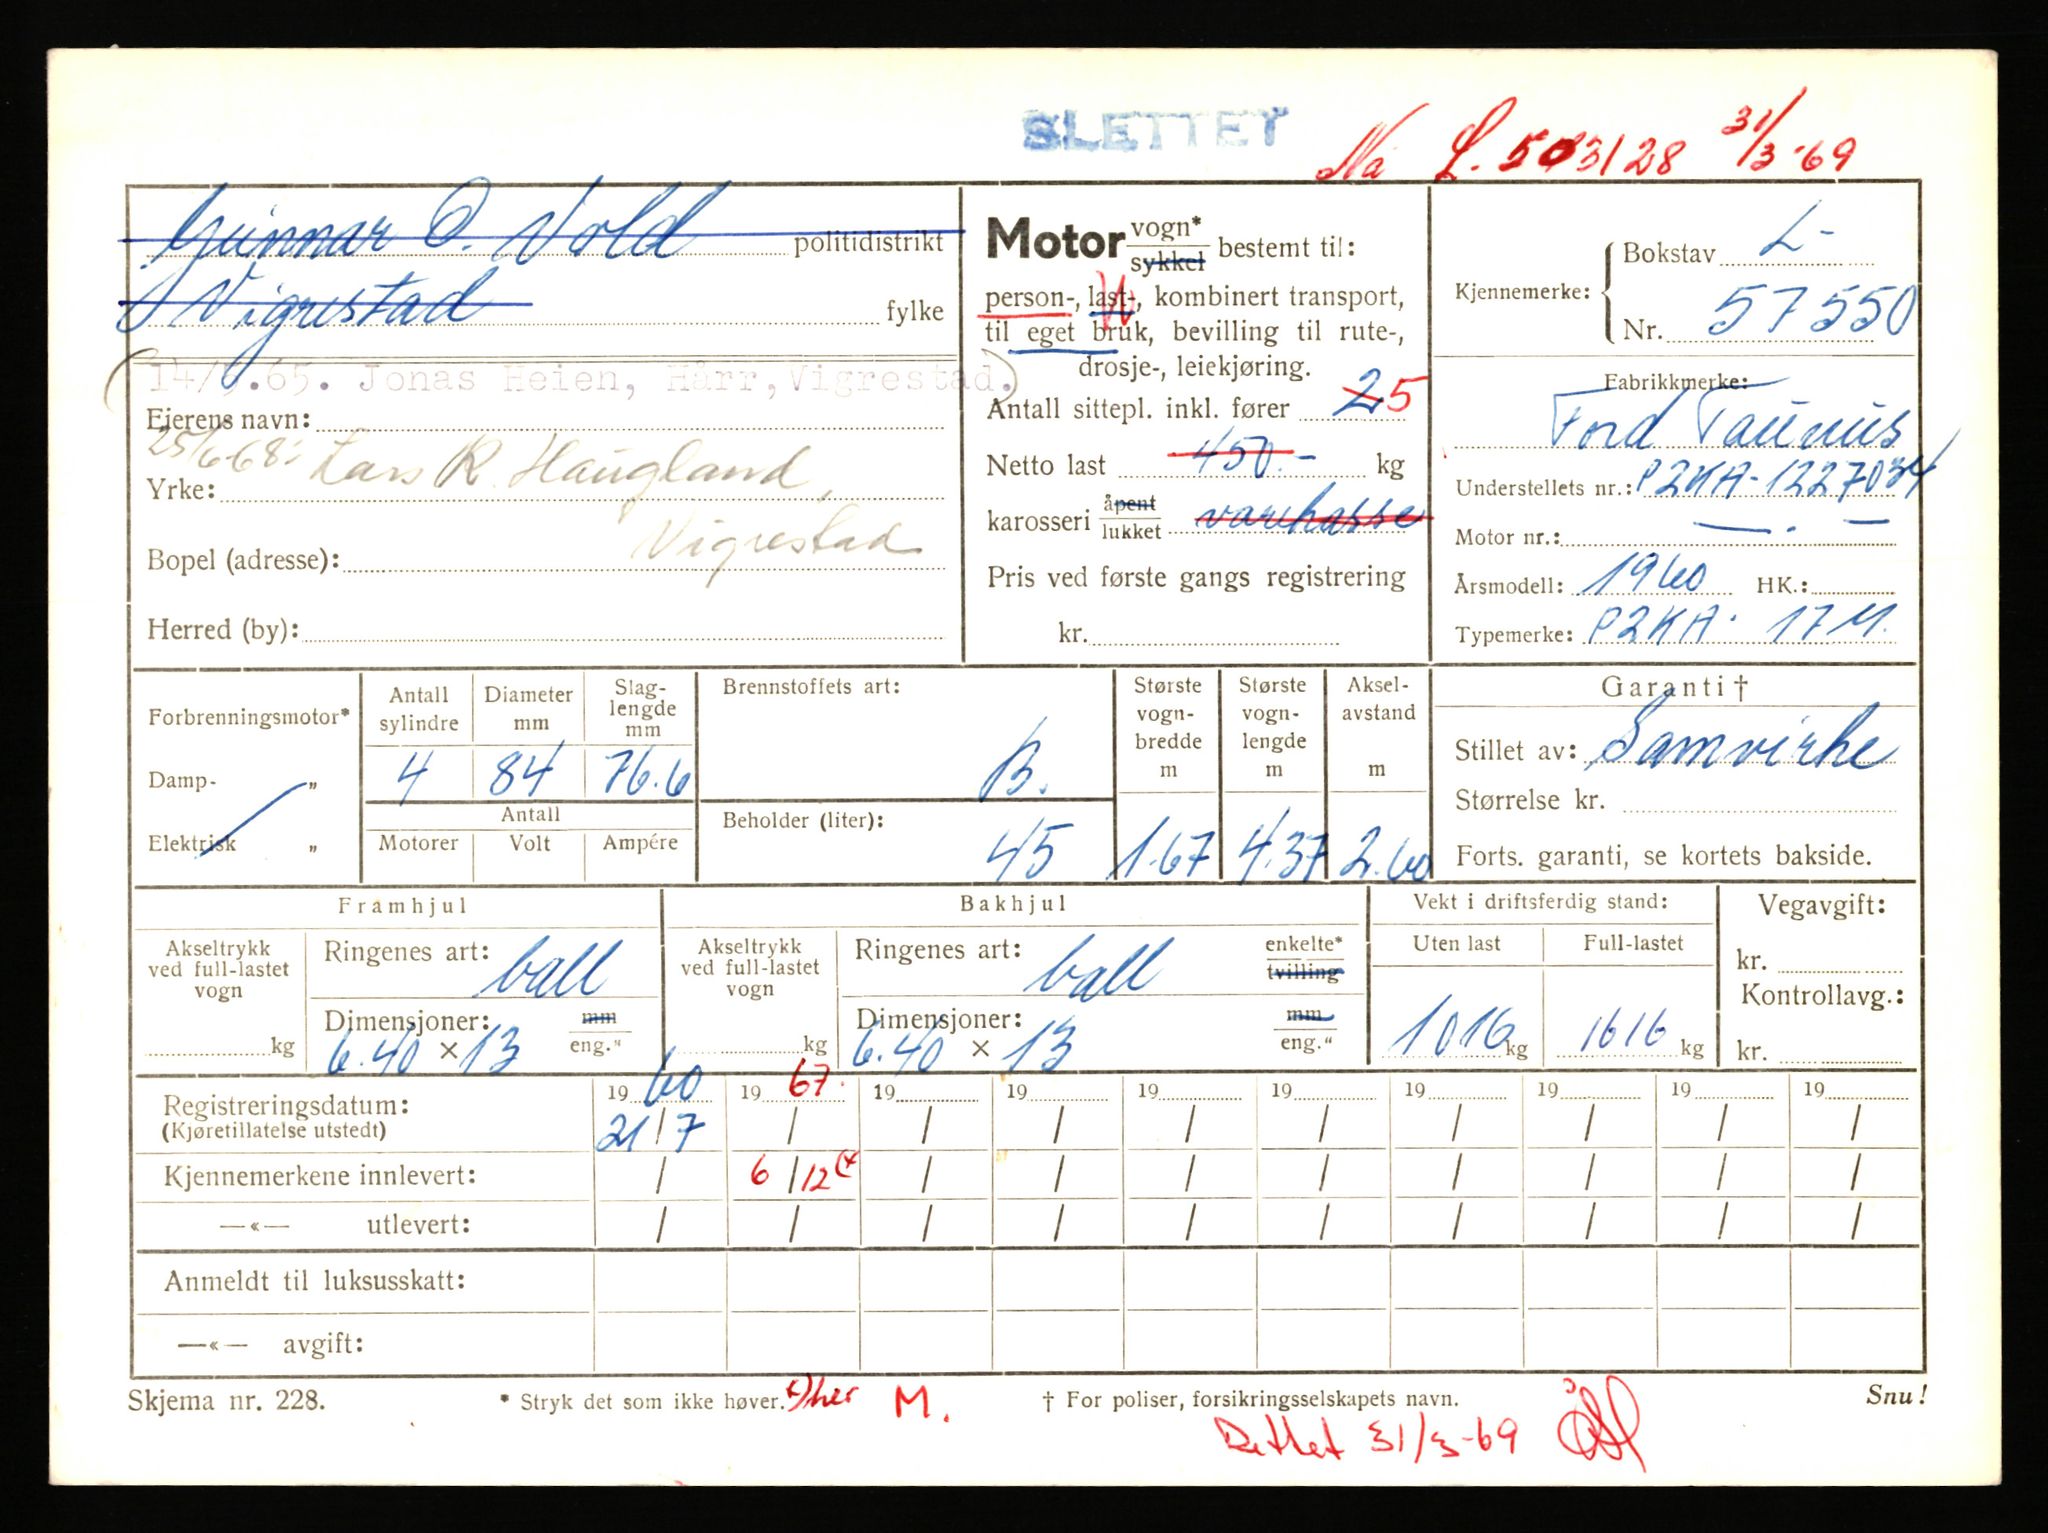 SLETTET
Nå L. 503128 31/3-69
Gunnar O. Vold politidistrikt
Vigrestad fylke
(14/ .65. Jonas Heien, Hårr, Vigrestad.)
Eierens navn:
25/6-68: Lars R. Haugland,
Yrke:
Vigrestad
Bopel (adresse):
Herred (by):
Motor vogn* sykkel bestemt til:
person-, last-, kombinert transport,
til eget bruk, bevilling til rute-,
drosje-, leiekjøring.
Antall sittepl. inkl. fører 2 5
Netto last 450.- kg
karosseri åpent lukket varekasse
Pris ved første gangs registrering
kr.
Kjennemerke: Bokstav L-
Nr. 57550
Fabrikkmerke:
Ford Taunus
Understellets nr.: P2KA-1227034
Motor nr.: — . —
Årsmodell: 1960 HK.:
Typemerke: P2KA. 17M.
Forbrenningsmotor*
Damp- „
Elektrisk „
Antall sylindre 4
Diameter mm 84
Slag-lengde mm 76.6
Antall
Motorer Volt Ampére
Brennstoffets art: B.
Beholder (liter): 45
Største vogn-bredde m 1.67
Største vogn-lengde m 4.37
Aksel-avstand m 2.60
Garanti †
Stillet av: Samvirke
Størrelse kr.
Forts. garanti, se kortets bakside.
Framhjul
Akseltrykk ved full-lastet vogn kg
Ringenes art: ball
Dimensjoner: mm eng."
6.40 × 13
Bakhjul
Akseltrykk ved full-lastet vogn kg
Ringenes art: ball enkelte* tvilling
Dimensjoner: mm eng."
6.40 × 13
Vekt i driftsferdig stand:
Uten last Full-lastet
1016 kg 1616 kg
Vegavgift:
kr.
Kontrollavg.:
kr.
Registreringsdatum: 19 60 19 67. 19 19 19 19 19 19 19 19
(Kjøretillatelse utstedt) 21/7 / / / / / / / / /
Kjennemerkene innlevert: / 6/12 (* / / / / / / / /
—«— utlevert: / / / / / / / / / /
Anmeldt til luksusskatt:
—«— avgift:
Skjema nr. 228. * Stryk det som ikke høver. *) her M. † For poliser, forsikringsselskapets navn. Snu!
31/3-69